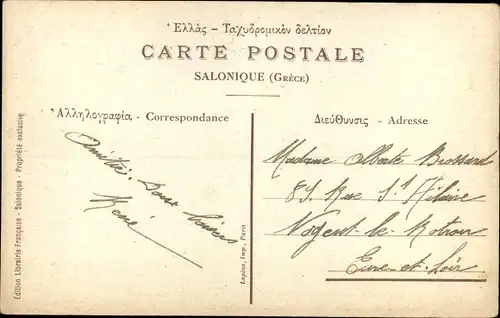 Ἑλλάς – Ταχυδρομικόν δελτίον
CARTE POSTALE
SALONIQUE (GRÈCE)
Ἀλληλογραφία - Correspondance
Διεύθυνσις - Adresse
Amitié. Doux baisers
René
Madame Alberte Brossard
89 Rue St Hilaire
Nogent-le-Rotrou
Eure-et-Loir
Edition Librairie Française - Salonique - Propriété exclusive
Lapina, Imp., Paris